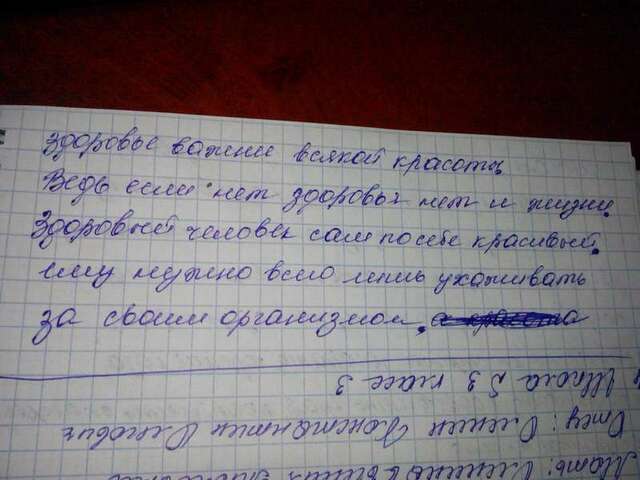 Здоровье важнее всякой красоты
Ведь если нет здоровья нет и жизни.
Здоровый человек сам по себе красивый.
ему нужно всего лишь ухаживать
за своим организмом.
Школа 53 класс 3
Отец: Константин Олегович
Мать: